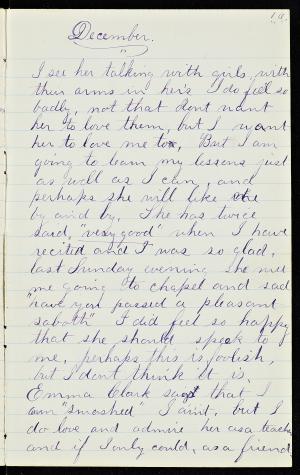 19.
December.
I see her talking with girls with
their arms in her's I do feel so
badly, not that dont want
her to love them, but I want
her to love me too, But I am
going to learn my lessons just
as well as I can, and
perhaps she will like me
by and by. She has twice
said, "very good" when I have
recited and I was so glad.
last Sunday evening she met
me going to chapel and said
"have you passed a pleasant
saboth" I did feel so happy
that she should speak to
me, perhaps this is foolish,
but I don't think it is.
Emma Clark says that I
am "smashed" I aint, but I
do love and admire her as a teacher
and if I only could, as a friend